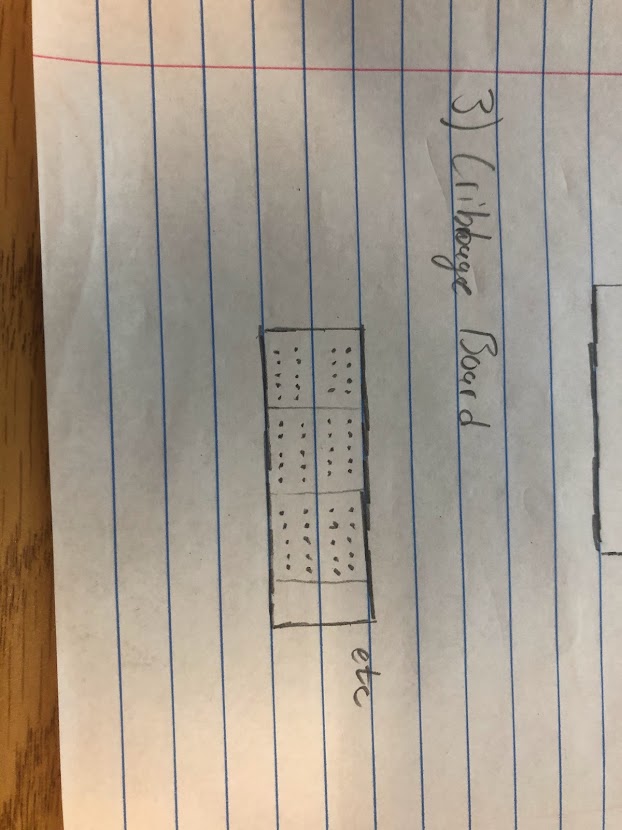 3) Cribbage Board
etc